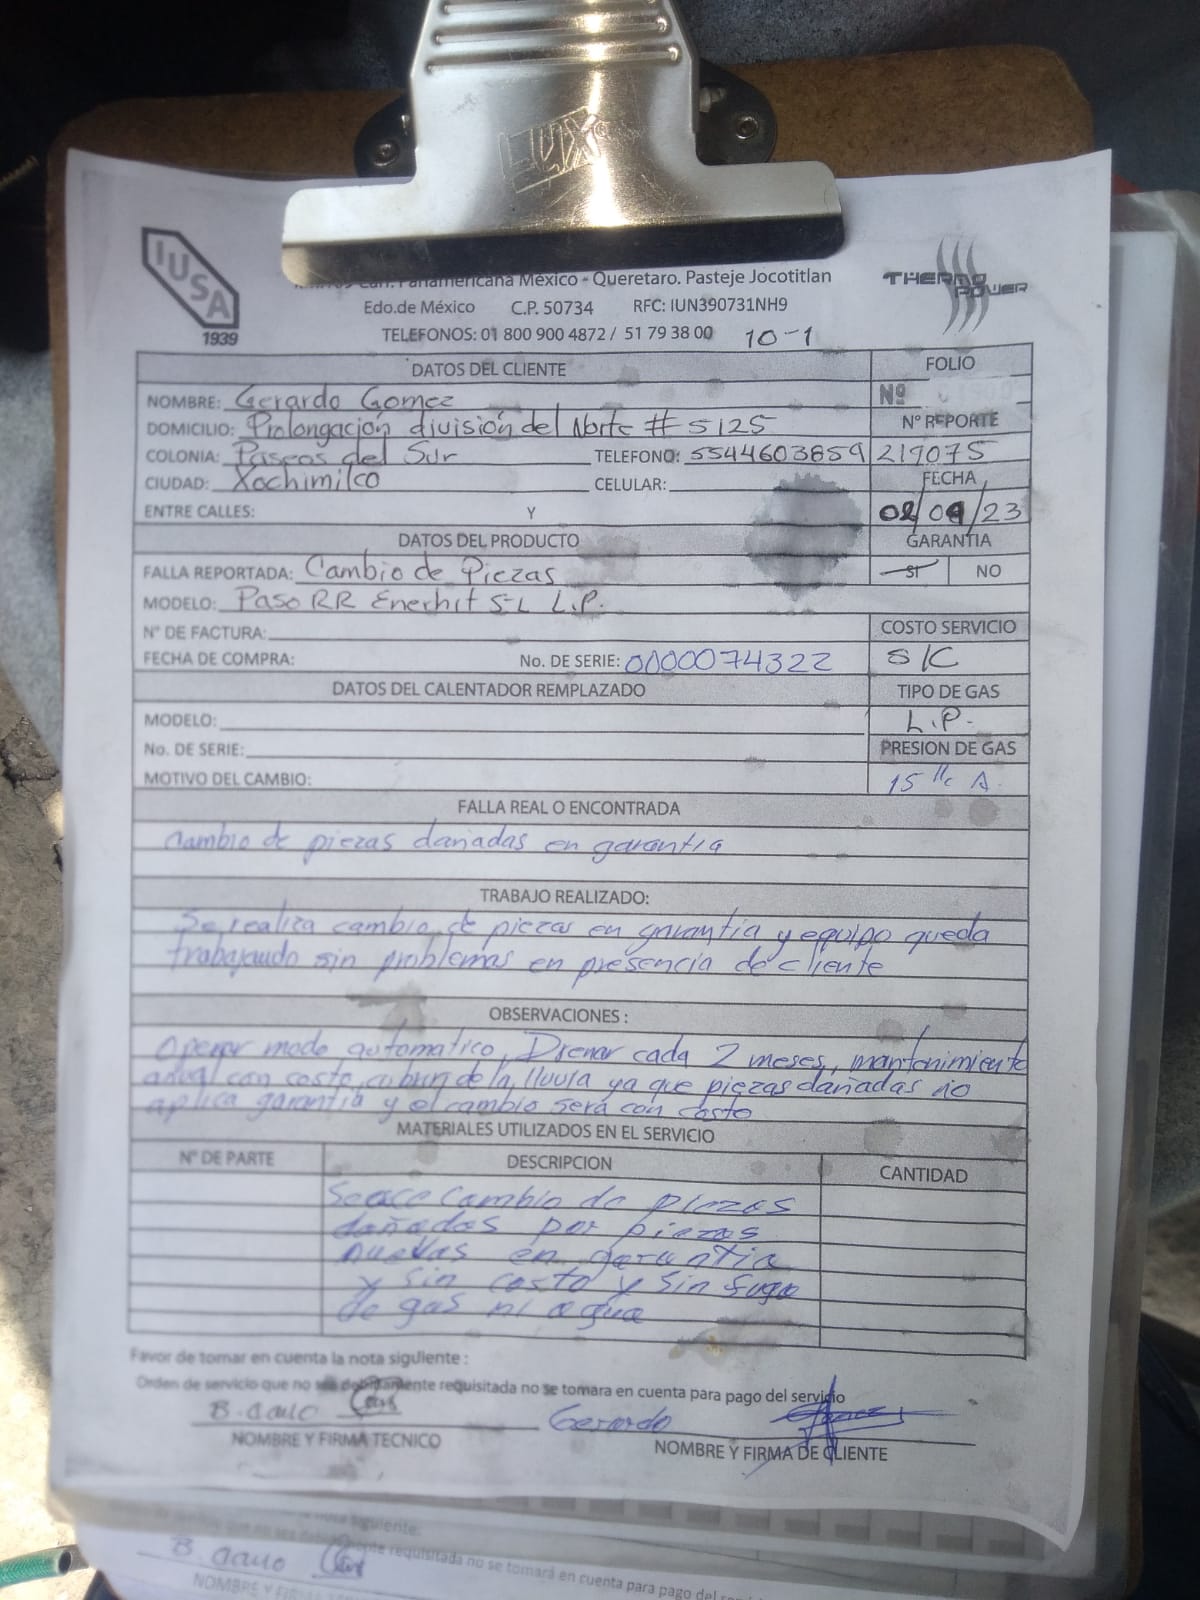 LUX
IUSA
1939
Panamericana México - Queretaro. Pasteje Jocotitlan
Edo.de México C.P. 50734 RFC: IUN390731NH9
TELEFONOS: 01 800 900 4872 / 51 79 38 00 10-1
THERMO POWER
DATOS DEL CLIENTE FOLIO
NOMBRE: Gerardo Gomez Nº
DOMICILIO: Prolongación división del Norte # 5125 N° REPORTE
COLONIA: Paseos del Sur TELEFONO: 5544603859 219075
CIUDAD: Xochimilco CELULAR: FECHA
ENTRE CALLES: Y 02/09/23
DATOS DEL PRODUCTO GARANTIA
FALLA REPORTADA: Cambio de Piezas SI NO
MODELO: Paso RR Enerhit 5-L L.P.
N° DE FACTURA: COSTO SERVICIO
FECHA DE COMPRA: No. DE SERIE: 0000074322 S/C
DATOS DEL CALENTADOR REMPLAZADO TIPO DE GAS
MODELO: L.P.
No. DE SERIE: PRESION DE GAS
MOTIVO DEL CAMBIO: 15 A.
FALLA REAL O ENCONTRADA
Cambio de piezas dañadas en garantia
TRABAJO REALIZADO:
Se realiza cambio de piezas en garantia y equipo queda
trabajando sin problemas en presencia de cliente
OBSERVACIONES :
Operar modo automatico, Drenar cada 2 meses, mantenimiento
anual con costo, cubrir de la lluvia ya que piezas dañadas no
aplica garantia y el cambio será con costo
MATERIALES UTILIZADOS EN EL SERVICIO
N° DE PARTE DESCRIPCION CANTIDAD
cambio de piezas
dañadas por piezas
nuevas en garantia
y sin costo y sin fuga
de gas ni agua
Favor de tomar en cuenta la nota siguiente :
Orden de servicio que no sea debidamente requisitada no se tomara en cuenta para pago del servicio
B. Cano Gerardo
NOMBRE Y FIRMA TECNICO NOMBRE Y FIRMA DE CLIENTE
nota siguiente:
requisitada no se tomará en cuenta para pago del
B. Cano
NOMBRE Y